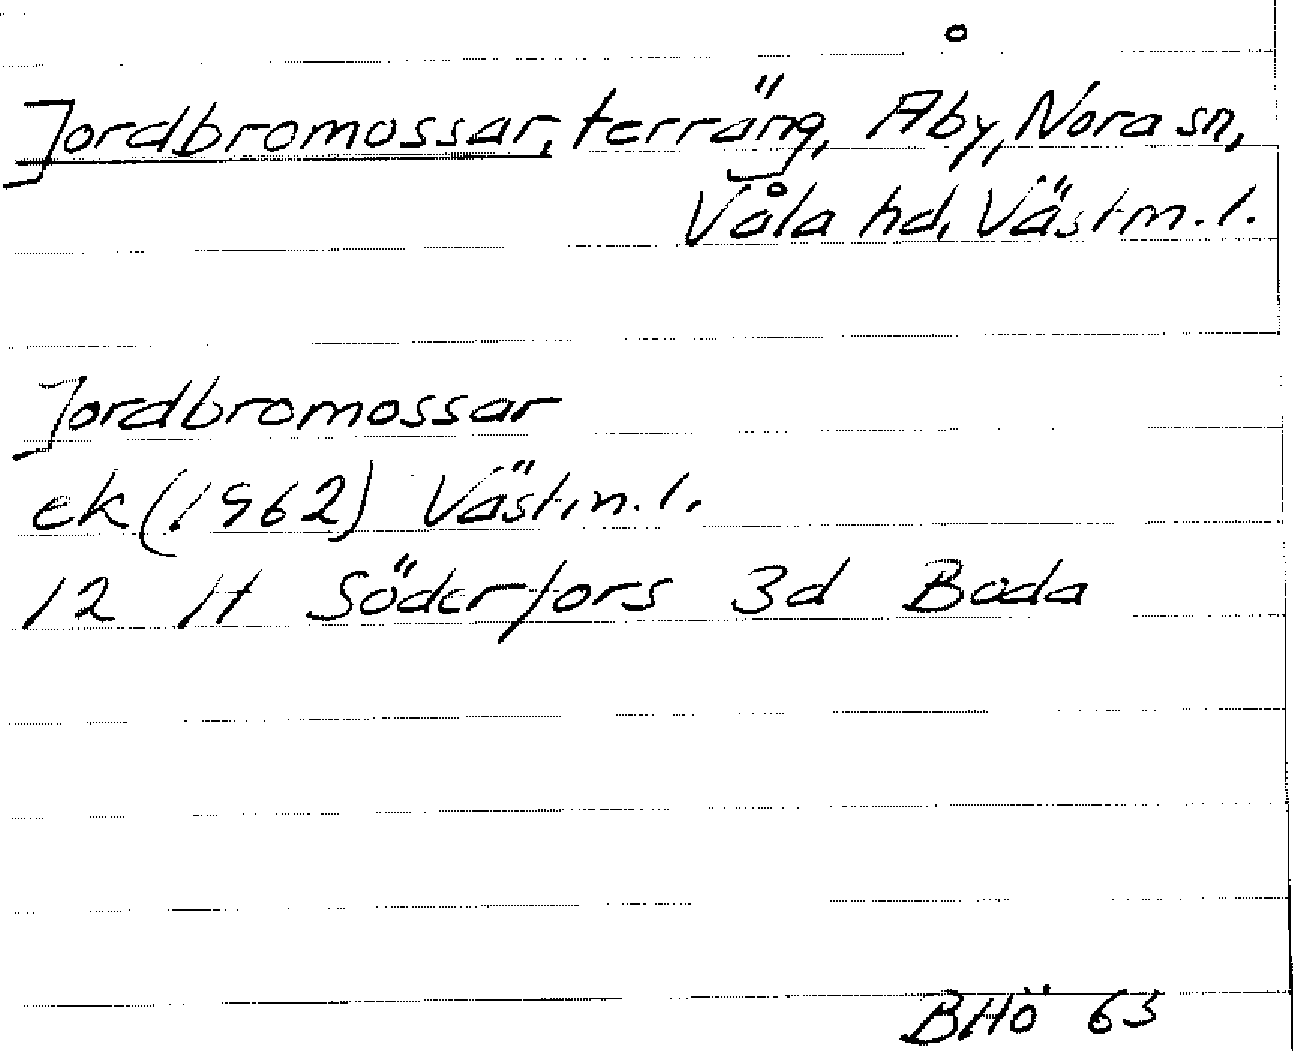 Jordbromossar, terräng, Åby, Nora sn,
Våla hd, Västm. l.
Jordbromossar
ek (1962) Västm. l.
12 H Söderfors 3d Boda
BHö 63